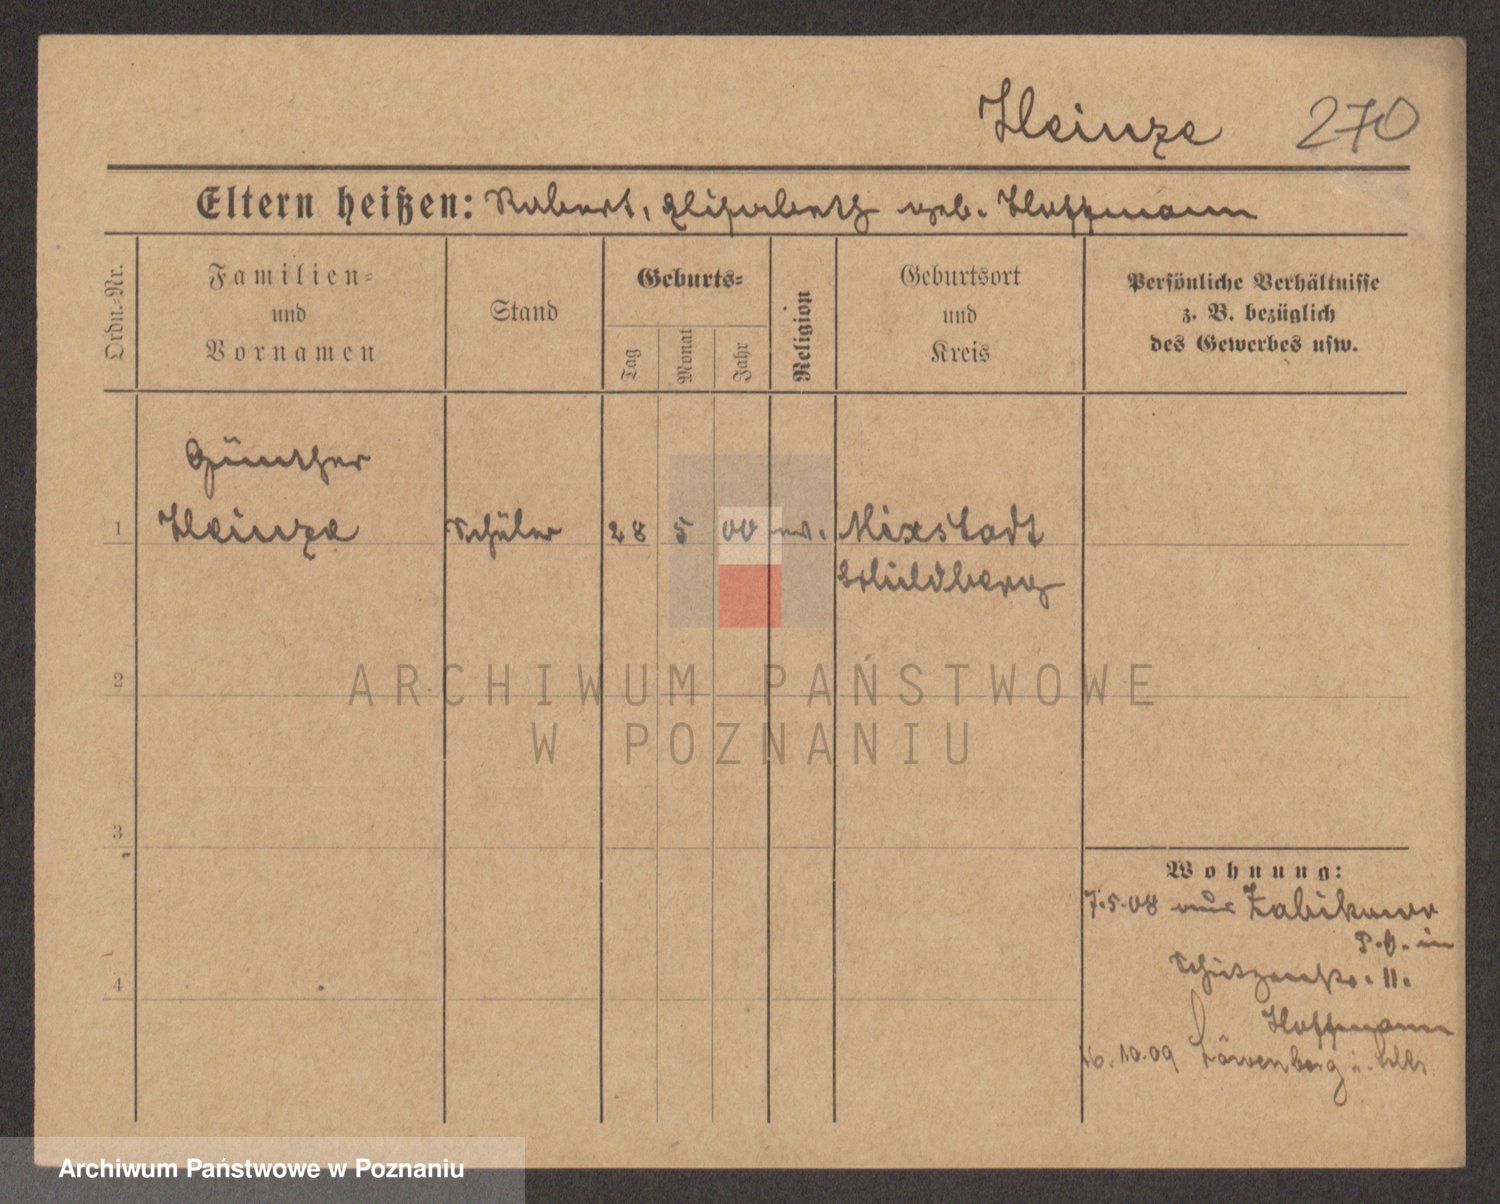 Heinze 270
Eltern heißen: Robert, Elisabeth geb. Hoffmann
Ordn.-Nr.
Familien-
und
Vornamen
Stand
Geburts-
Tag
Monat
Jahr
Religion
Geburtsort
und
Kreis
Persönliche Verhältnisse
z. B. bezüglich
des Gewerbes usw.
Günther
1 Heinze Schüler 28 5 00 ev. Mixstadt
Schildberg
2
3
4
Wohnung:
7.5.08 aus Zabikowo
P.O. in
Schützenstr. 11.
Hoffmann
10.09 Löwenberg i. Schls
ARCHIWUM PAŃSTWOWE
W POZNANIU
Archiwum Państwowe w Poznaniu